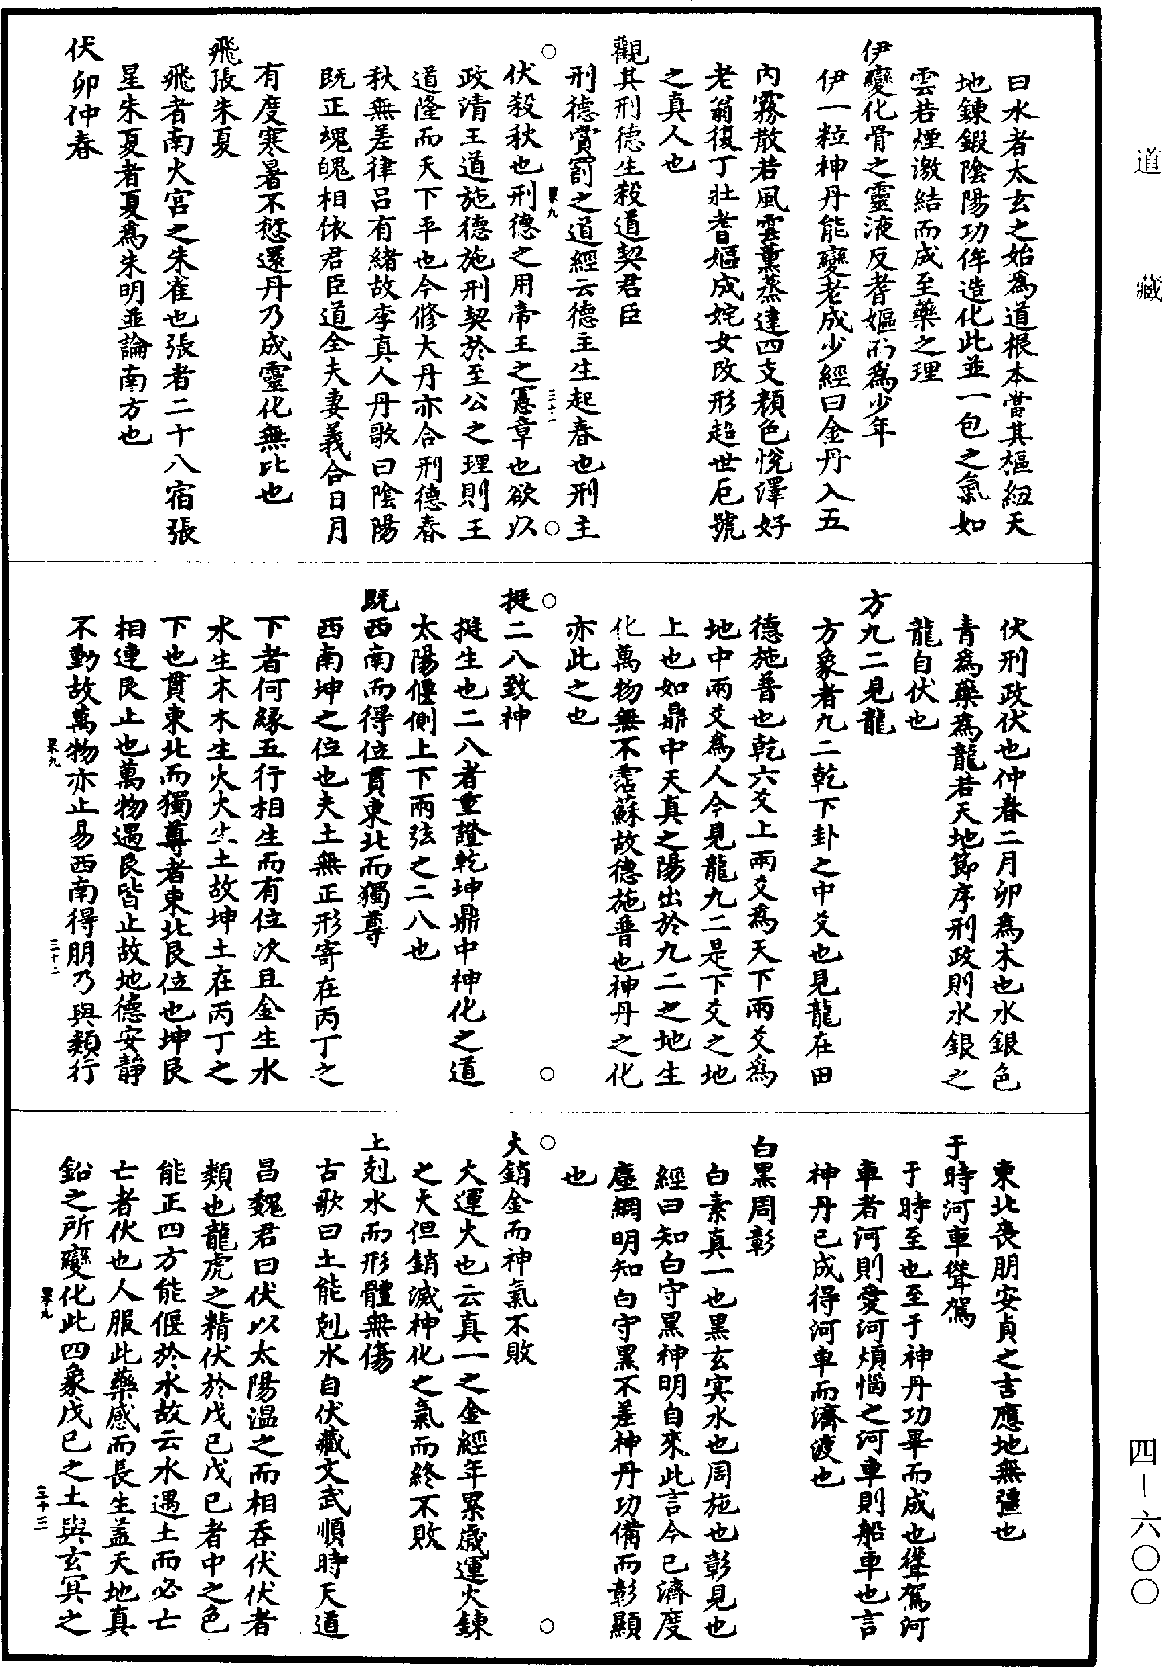 道藏
四—六〇〇
曰水者太玄之始為道根本當其樞紐天
地鍊鍛陰陽功侔造化此並一包之氣如
雲若煙激結而成至藥之理
伊變化骨之靈液反耆嫗而為少年
伊一粒神丹能變老成少經曰金丹入五
內霧散若風雲薰蒸達四支顏色悅澤好
老翁復丁壯耆嫗成姹女改形超世厄號
之真人也
觀其刑德生殺道契君臣
刑德賞罰之道經云德主生起春也刑主
伏殺秋也刑德之用帝王之憲章也欲以
政清王道施德施刑契於至公之理則王
道隆而天下平也今修大丹亦合刑德春
秋無差律呂有緒故李真人丹歌曰陰陽
既正魂魄相依君臣道全夫妻義合日月
有度寒暑不愆還丹乃成靈化無比也
飛張朱夏
飛者南火宮之朱雀也張者二十八宿張
星朱夏者夏為朱明並論南方也
伏卯仲春
伏刑政伏也仲春二月卯為木也水銀色
青為藥為龍若天地節序刑政則水銀之
龍自伏也
方九二見龍
方象者九二乾下卦之中爻也見龍在田
德施普也乾六爻上兩爻為天下兩爻為
地中兩爻為人今見龍九二是下爻之地
上也如鼎中天真之陽出於九二之地生
化萬物無不霑蘇故德施普也神丹之化
亦此之也
挺二八致神
挺生也二八者重證乾坤鼎中神化之道
太陽偃側上下兩弦之二八也
既西南而得位貫東北而獨尊
西南坤之位也夫土無正形寄在丙丁之
下者何緣五行相生而有位次且金生水
水生木木生火火生土故坤土在丙丁之
下也貫東北而獨尊者東北艮位也坤艮
相連艮止也萬物遇艮皆止故地德安靜
不動故萬物亦止易西南得朋乃與類行
東北喪朋安貞之吉應地無疆也
于時河車聳駕
于時至也至于神丹功畢而成也聳駕河
車者河則愛河煩惱之河車則船車也言
神丹已成得河車而濟渡也
白黑周彰
白素真一也黑玄冥水也周施也彰見也
經曰知白守黑神明自來此言今已濟度
塵網明知白守黑不差神丹功備而彰顯
也
火銷金而神氣不敗
火運火也云真一之金經年累歲運火鍊
之火但銷滅神化之氣而終不敗
土剋水而形體無傷
古歌曰土能剋水自伏藏文武順時天道
昌魏君曰伏以太陽溫之而相吞伏伏者
類也龍虎之精伏於戊己戊己者中之色
能正四方能偃於水故云水遇土而必亡
亡者伏也人服此藥感而長生蓋天地真
鉛之所變化此四象戊己之土與玄冥之